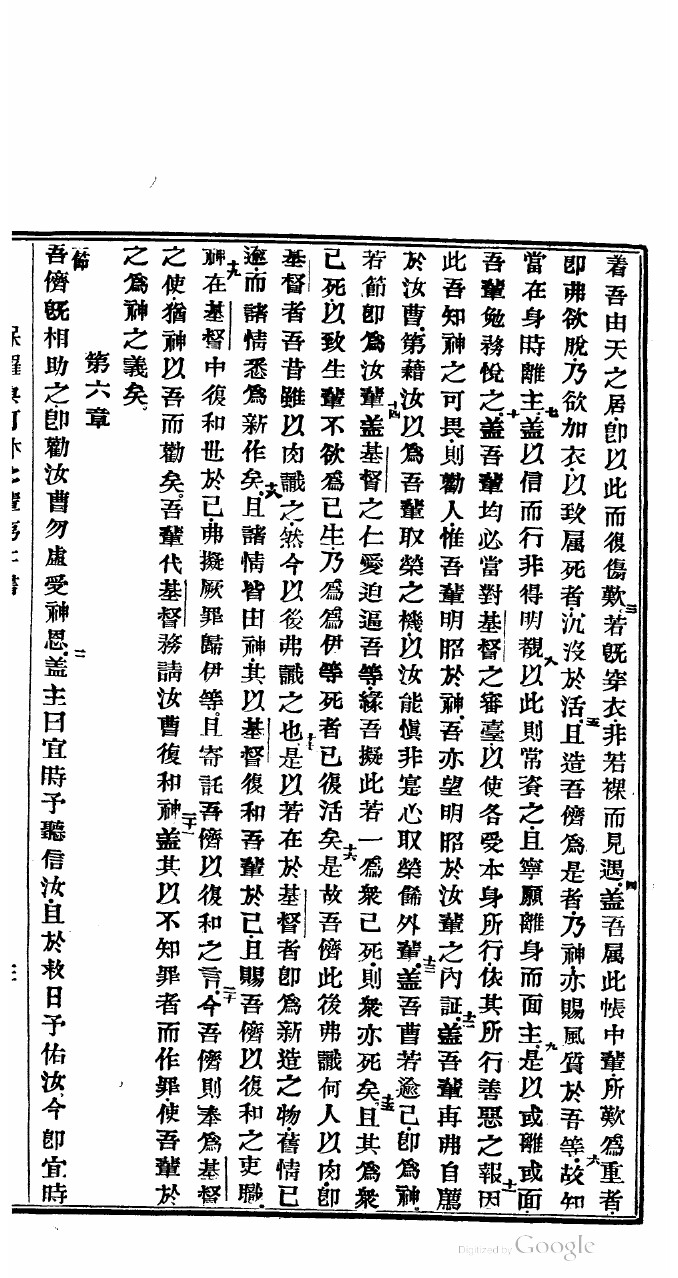 着吾由天之居、卽以此而復傷歎。三若旣穿衣非若裸而見遇。四蓋吾属此帳中輩所歎爲重者、
卽弗欲脫、乃欲加衣、以致属死者、沉没於活。五且造吾儕爲是者、乃神亦賜風質於吾等。六故知
當在身時離主。七蓋以信而行非得明覩。八以此則常資之、且寧願離身而面主。九是以或離或面
吾輩勉務悅之。十蓋吾輩均必當對基督之審臺、以使各受本身所行、依其所行善惡之報。十一因
此吾知神之可畏、則勸人、惟吾輩明昭於神、吾亦望明昭於汝輩之內証。十二蓋吾輩再弗自薦
於汝曹、第藉汝以爲吾輩取榮之機、以汝能愼非寔心取榮、餙外輩。十三蓋吾曹若逾己、卽爲神、
若節卽爲汝輩。十四蓋基督之仁愛迫逼吾等、緣吾擬此、若一爲衆已死、則衆亦死矣。十五且其爲衆
已死、以致生輩不欲爲己生、乃爲爲伊等死者已復活矣。十六是故吾儕此後弗識何人以肉、卽
基督者、吾昔雖以肉識之、然今以後弗識之也。十七是以若在於基督者、卽爲新造之物、舊情已
逝、而諸情悉爲新作矣。十八且諸情皆由神、其以基督復和吾輩於己、且賜吾儕以復和之吏職。
十九神在基督中復和世於己、弗擬厥罪歸伊等、且寄託吾儕以復和之言。二十今吾儕則奉爲基督
之使、猶神以吾而勸矣。吾輩代基督務請汝曹復和神。二十一蓋其以不知罪者而作罪、使吾輩於
之爲神之義矣。
第六章
一節吾儕旣相助之、卽勸汝曹勿虛受神恩。二蓋主曰、宜時予聽信汝、且於救日予佑汝、今卽宜時